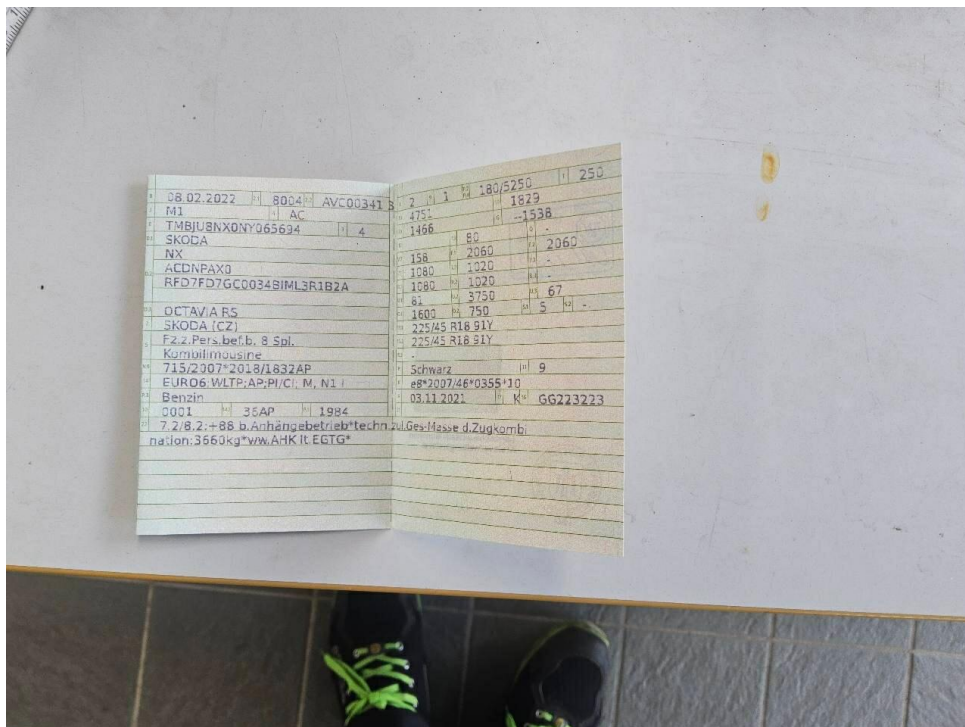 08.02.2022 8004 AVC00341 3
M1 AC
TMBJU8NX0NY065694 4
SKODA
NX
ACDNPAX0
RFD7FD7GC0034BIML3R1B2A
OCTAVIA RS
SKODA (CZ)
Fz.z.Pers.bef.b. 8 Spl.
Kombilimousine
715/2007*2018/1832AP
EURO6;WLTP;AP;PI/CI; M, N1 I
Benzin
0001 36AP 1984
7.2/8.2:+88 b.Anhängebetrieb*techn.zul.Ges-Masse d.Zugkombi
nation:3660kg*ww.AHK lt.EGTG*
2 1 180/5250 250
4751 1829
1466 --1538
80 -
158 2060 2060
1080 1020 -
1080 1020 -
81 3750 67
1600 750 5 -
225/45 R18 91Y
225/45 R18 91Y
-
Schwarz 9
e8*2007/46*0355*10
03.11.2021 K GG223223